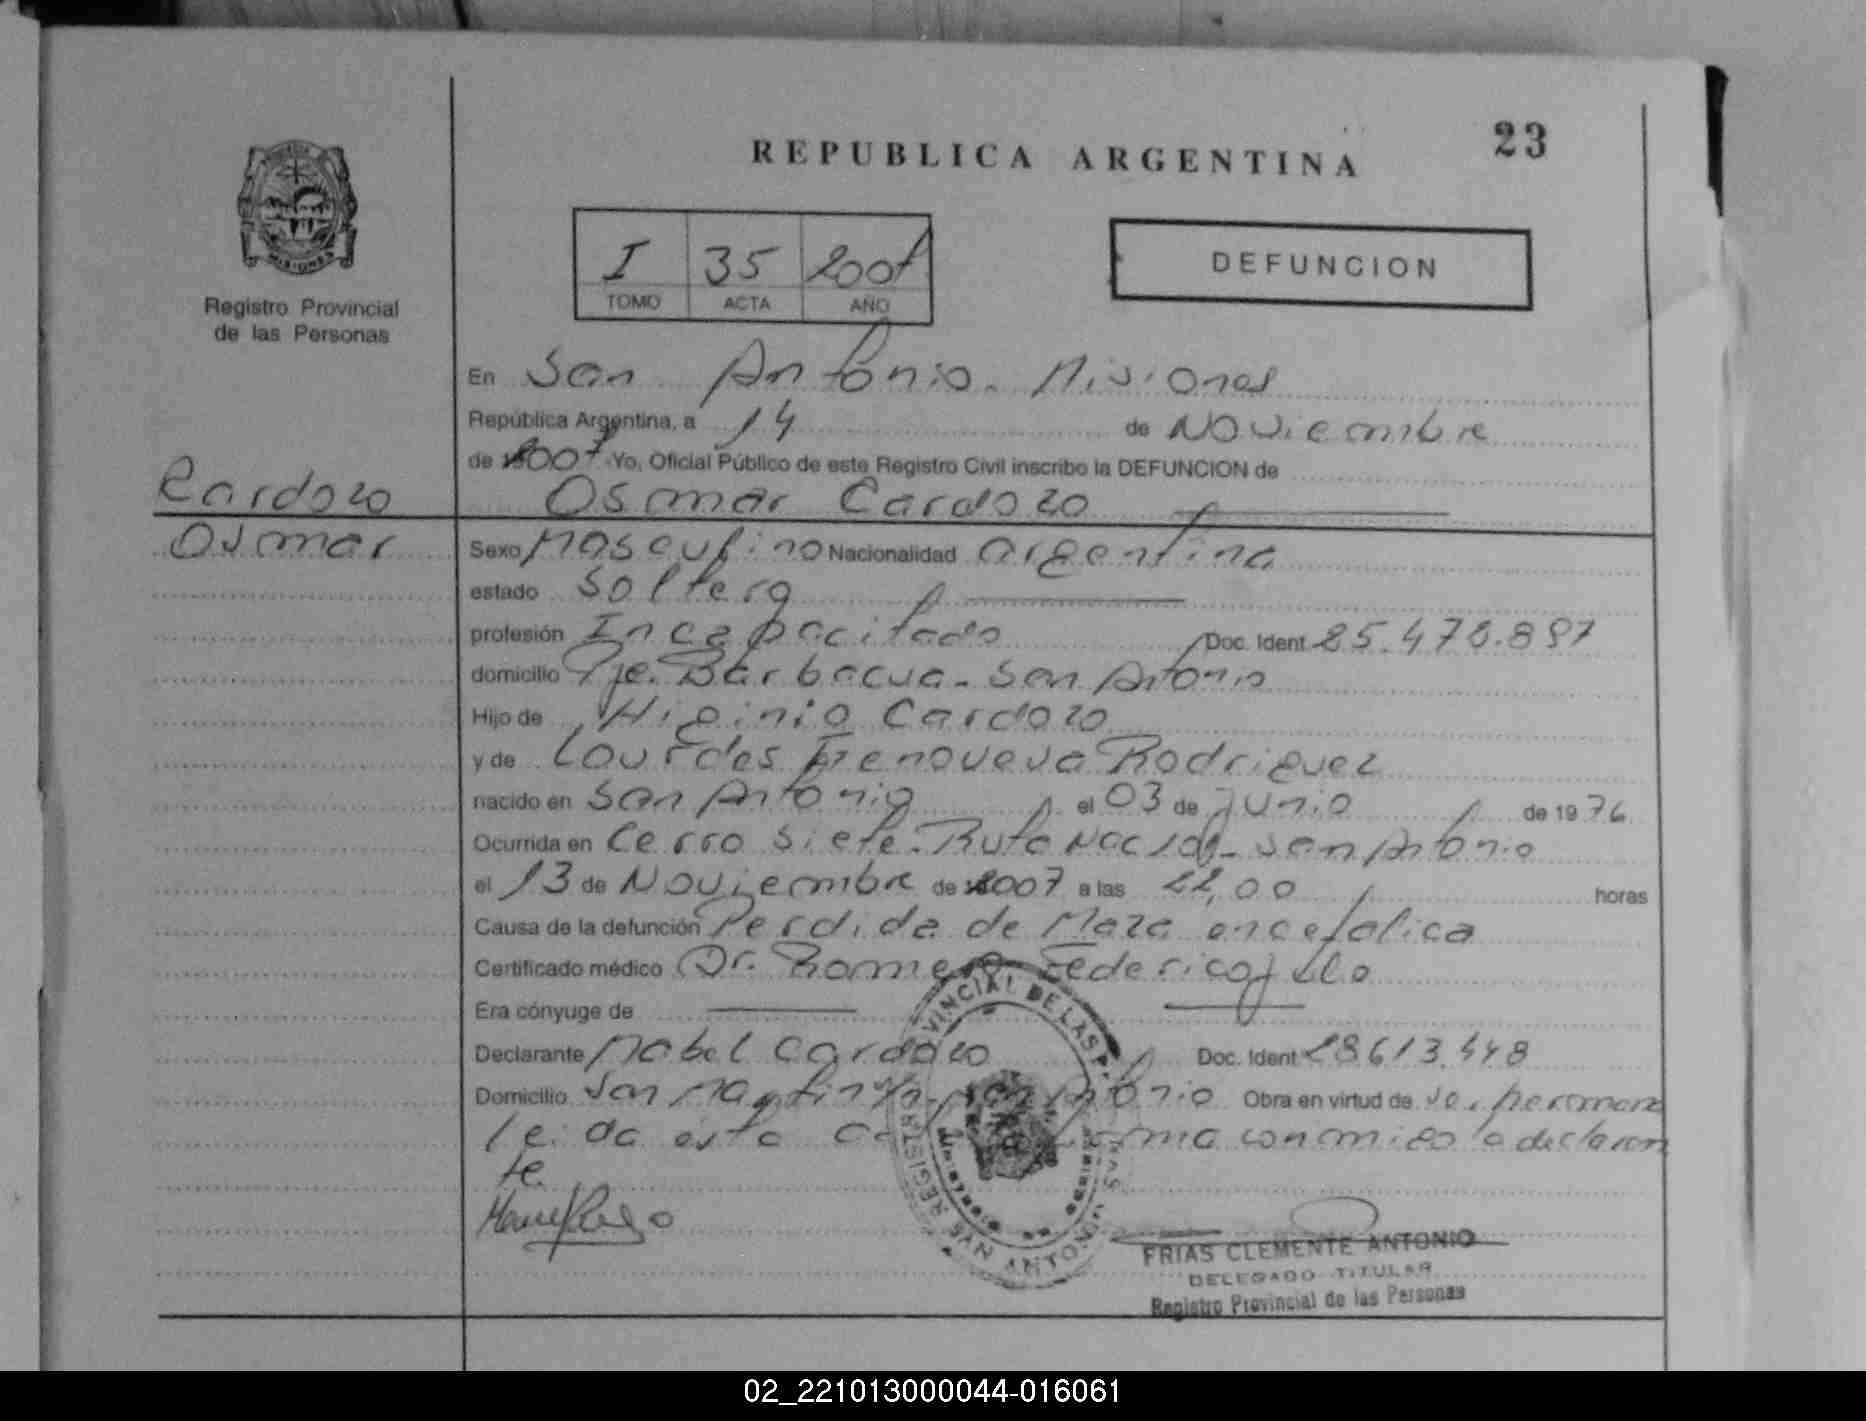 REPUBLICA ARGENTINA
23
I 35 2007
TOMO ACTA AÑO
DEFUNCION
MISIONES
Registro Provincial
de las Personas
En San Antonio. Misiones
República Argentina, a 14 de Noviembre
de 2007 Yo, Oficial Público de este Registro Civil inscribo la DEFUNCION de
Cardozo
Osmar
Osmar Cardozo
Sexo Masculino Nacionalidad argentina
estado Soltero
profesión Incapacitado Doc. Ident. 25.478.897
domicilio Pje. Barbacua - San Antonio
Hijo de Higinio Cardozo
y de Lourdes Genoveva Rodriguez
nacido en San Antonio el 03 de Junio de 1976
Ocurrida en Cerro Siete - Ruta Nac - San Antonio
el 13 de Noviembre de 2007 a las 22,00 horas
Causa de la defunción Perdida de Maza encefalica
Certificado médico Dr. Romero Federico
Era cónyuge de
Declarante Mabel Cardozo Doc. Ident 28.613.448
Domicilio San Martin s/n. San Antonio Obra en virtud de ser hermana
leida esta acta firma conmigo la declaran
te.
REGISTRO PROVINCIAL DE LAS PERSONAS
SAN ANTONIO
FRIAS CLEMENTE ANTONIO
DELEGADO TITULAR
Registro Provincial de las Personas
02_221013000044-016061